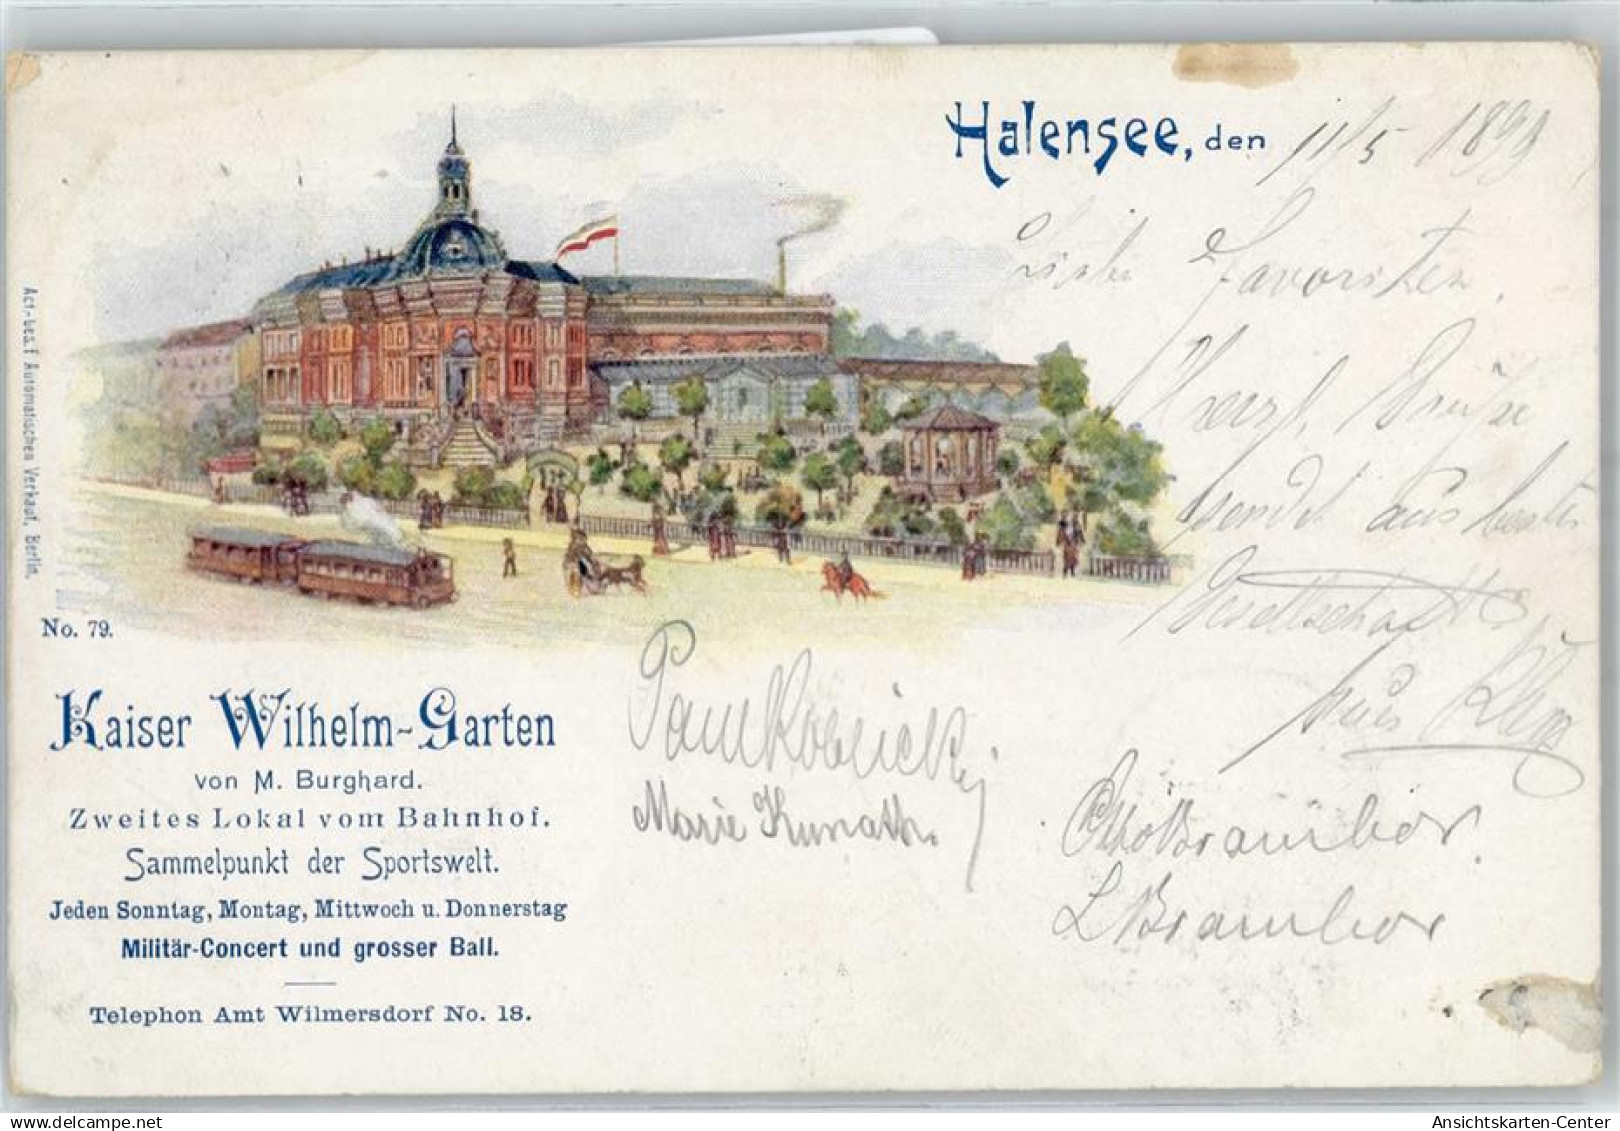 Halensee, den 11/5 1899
Liebe Favoriten,
Herzl. Grüße
sendet aus bester
Gesellschaft
Act.-Ges. f. Automatischen Verkauf, Berlin.
No. 79.
Kaiser Wilhelm-Garten
von M. Burghard.
Zweites Lokal vom Bahnhof.
Sammelpunkt der Sportswelt.
Jeden Sonntag, Montag, Mittwoch u. Donnerstag
Militär-Concert und grosser Ball.
Telephon Amt Wilmersdorf No. 18.
Paul
Marie Kunath.
Otto Brambor.
L Brambor
Ansichtskarten-Center